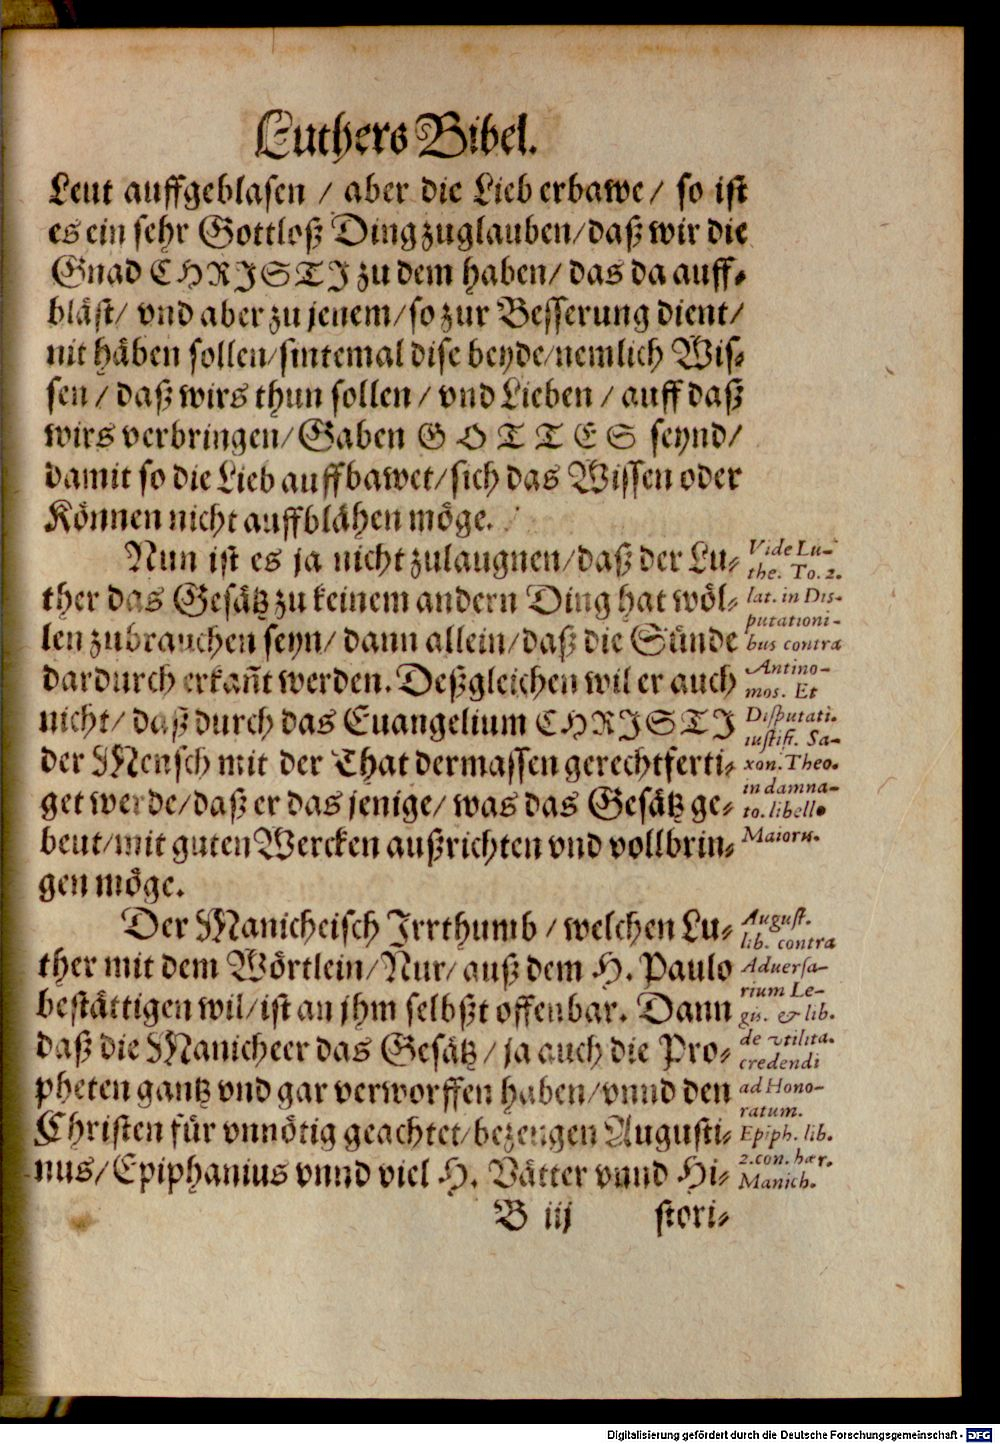 Luthers Bibel.
Leut auffgeblasen / aber die Lieb erbawe / so ist
es ein sehr Gottloß Ding zuglauben/daß wir die
Gnad CHRISTI zu dem haben/ das da auff-
bläst/ vnd aber zu jenem/so zur Besserung dient/
nit häben sollen/sintemal dise beyde/nemlich Wis-
sen / daß wirs thun sollen / vnd Lieben / auff daß
wirs verbringen/Gaben GOTTES seynd/
damit so die Lieb auffbawet/sich das Wissen oder
Können nicht auffblähen möge.
Nun ist es ja nicht zulaugnen/daß der Lu-
ther das Gesätz zu keinem andern Ding hat wöl-
len zubrauchen seyn/ dann allein/daß die Sünde
dardurch erkañt werden. Deßgleichen wil er auch
nicht/ daß durch das Euangelium CHRISTI
der Mensch mit der That dermassen gerechtferti-
get werde/daß er das jenige/ was das Gesätz ge-
beut/mit guten Wercken außrichten vnd vollbrin-
gen möge.
Vide Lu-
the. To. 2.
lat. in Dis-
putationi-
bus contra
Antino-
mos. Et
Disputati.
iustifi. Sa-
xon. Theo.
in damna-
to. libello
Maioru.
Der Manicheisch Irrthumb / welchen Lu-
ther mit dem Wörtlein/Nur/ auß dem H. Paulo
bestättigen wil/ist an jhm selbßt offenbar. Dann
daß die Manicheer das Gesätz / ja auch die Pro-
pheten gantz vnd gar verworffen haben/vnnd den
Christen für vnnötig geachtet/bezeugen Augusti-
nus/Epiphanius vnnd viel H. Vätter vnnd Hi-
August.
lib. contra
Aduersa-
rium Le-
gis. & lib.
de vtilita.
credendi
ad Hono-
ratum.
Epiph. lib.
2. con. hær.
Manich.
B iij stori-
Digitalisierung gefördert durch die Deutsche Forschungsgemeinschaft - DFG